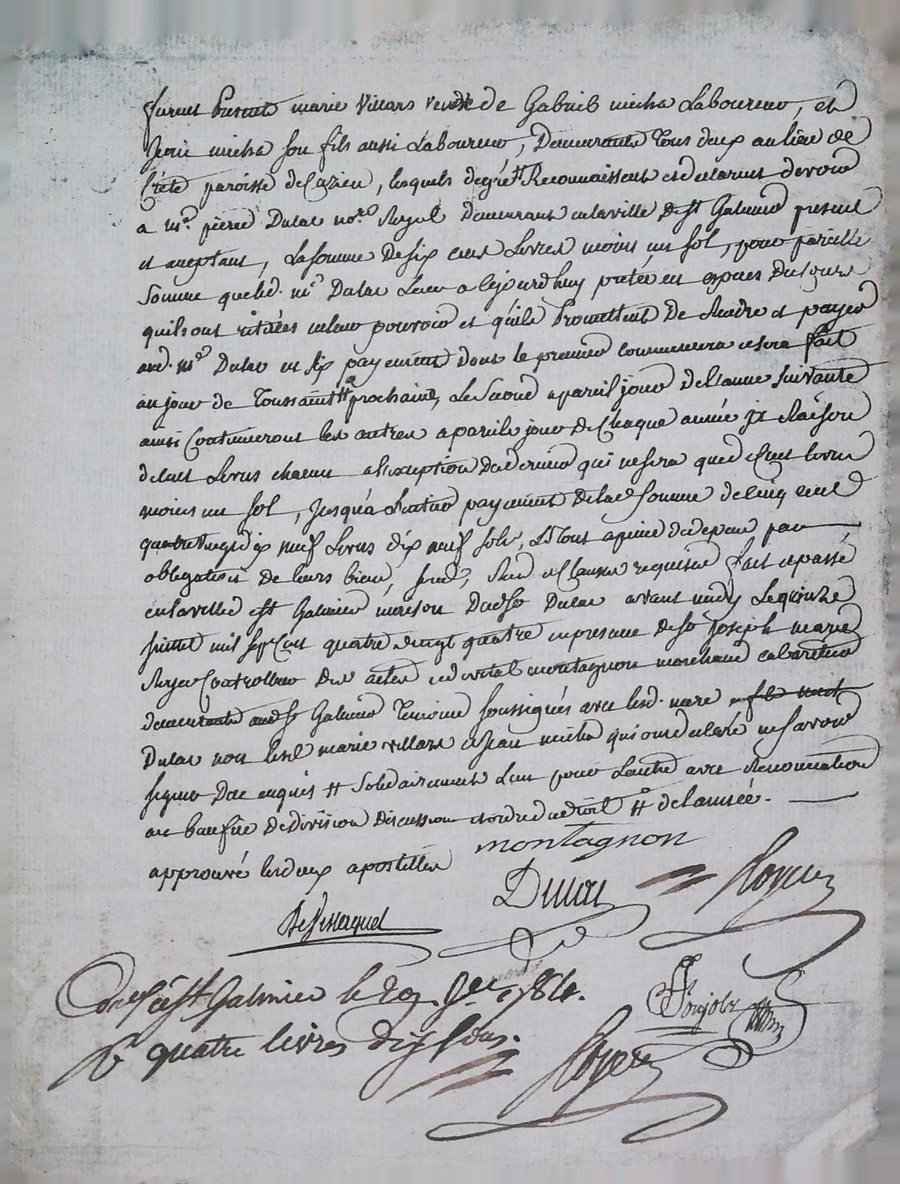 furent Presents marie Villars veuve de Gabriel micha Laboureur, et
Jean micha son fils aussi Laboureur, Demeurants Tous deux au lieu de
paroisse de Cuzieu, lesquels de gré Reconnaissent et déclarent devoir
a mr. pierre Dulac nore. Royal Demeurant en la ville de st Galmier present
et aceptant, La somme De six cens Livres moins un sol, pour pareille
Somme que led. mr. Dulac Leur a cejourd'huy pretée en especes Du Cours
qu'ils ont retirées en leur pouvoir et qu'ils Promettent De Rendre et payer
aud. mr. Dulac en six payements dont le premier commencera et sera fait
au jour de Toussaint prochain, Le Second a pareil jour de l'année suivante
ainsi Continueront les autres a pareils jour de Chaque année a Raison
de cent Livres chacun a l'exception du dernier qui ne sera que de Cent livres
moins un sol, Jusqu'a L'entier payement de lad. somme de Cinq cent
quatre vingt dix neuf Livres dix neuf sols, Le Tout a peine de depens par
obligation de leurs biens, Clauses requises fait et passé
en la ville st Galmier maison Dud. sr Dulac avant midy Le quinze
juillet mil sept Cent quatre vingt quatre en presence de sr Joseph marie
Royer Controlleur des actes et montagnon marchand cabaretier
demeurants aud. st Galmier Temoins soussignés avec led. me.
Dulac non lesd. marie villars et Jean micha qui ont déclaré ne savoir
signer De ce enquis # Solidairement L'un pour L'autre avec Renonciation
au benefice De division Discussion et ordre de droit # de l'année.
approuvé les deux apostilles
montagnon
Dulac
Royer
st Galmier le 29 1784.
quatre livres dix sous.
Royer